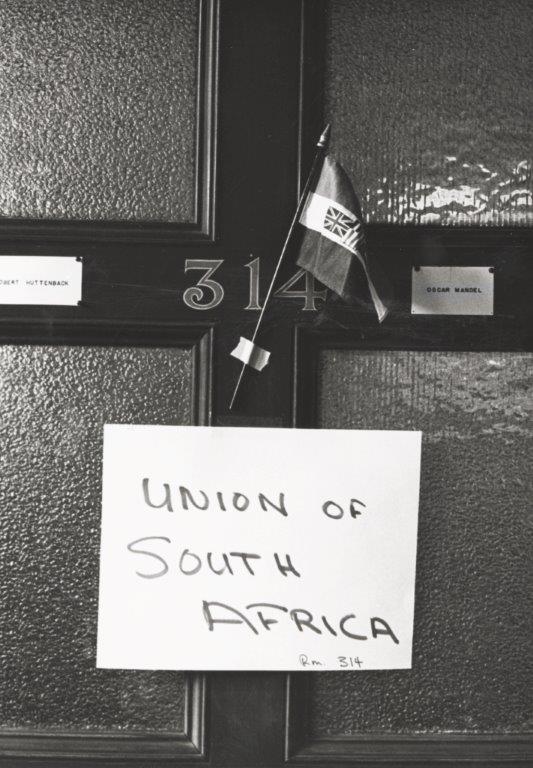 OBERT HUTTENBACK
314
OSCAR MANDEL
UNION OF
SOUTH
AFRICA
Rm. 314